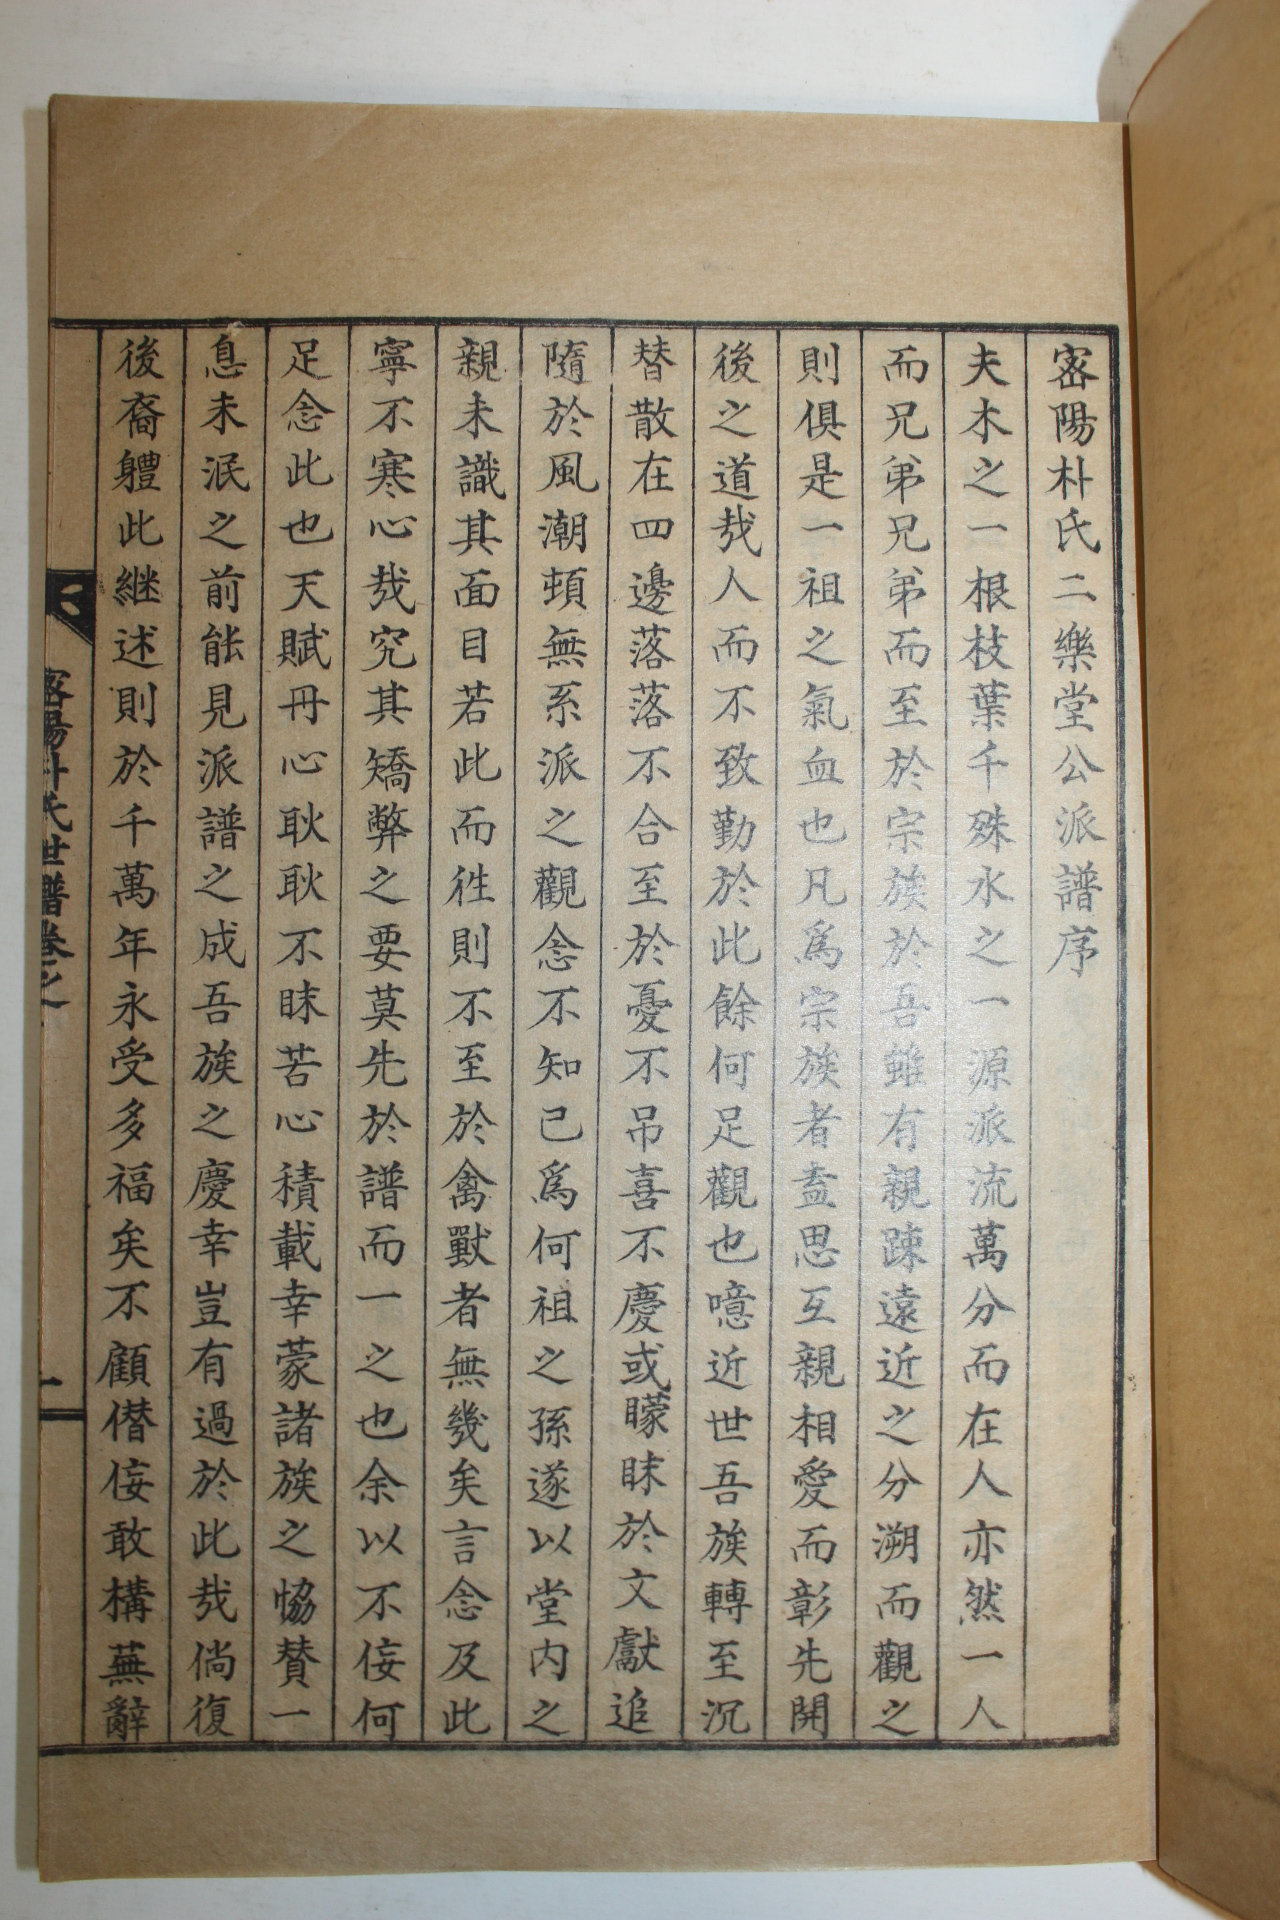 密陽朴氏二樂堂公派譜序
夫木之一根枝葉千殊水之一源派流萬分而在人亦然一人
而兄弟兄弟而至於宗族於吾雖有親踈遠近之分溯而觀之
則俱是一祖之氣血也凡爲宗族者盍思互親相愛而彰先開
後之道哉人而不致勤於此餘何足觀也噫近世吾族轉至沉
替散在四邊落落不合至於憂不吊喜不慶或矇眛於文獻追
隨於風潮頓無系派之觀念不知已爲何祖之孫遂以堂内之
親未識其面目若此而徃則不至於禽獸者無幾矣言念及此
寧不寒心哉究其矯弊之要莫先於譜而一之也余以不侫何
足念此也天賦丹心耿耿不眛苦心積載幸蒙諸族之恊賛一
息未泯之前能見派譜之成吾族之慶幸豈有過於此哉倘復
後裔軆此継述則於千萬年永受多福矣不顧僭侫敢構蕪辭
密陽朴氏世譜卷之一